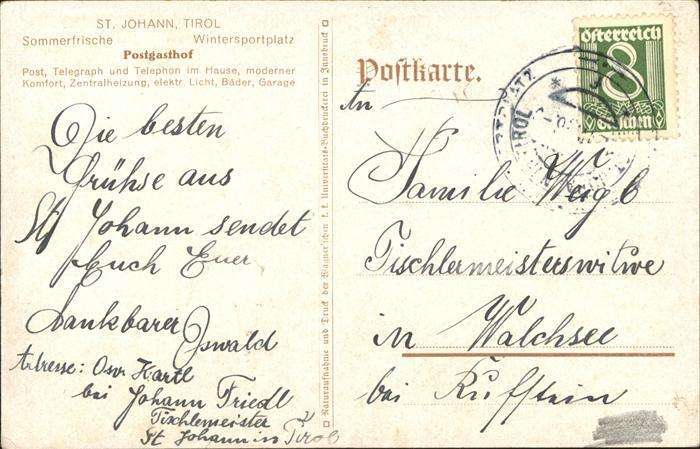 ST. JOHANN, TIROL
Sommerfrische Wintersportplatz
Postgasthof
Post, Telegraph und Telephon im Hause, moderner
Komfort, Zentralheizung, elektr. Licht, Bäder, Garage
Die besten
Grühse aus
St Johann sendet
Euch Euer
dankbarer Oswald
Adresse: Osw Hartl
bei Johann Friedl
Tischlemeister
St Johann in Tirol
Naturaufnahme und Druck der Wagner'schen k. k. Universitäts-Buchdruckerei in Innsbruck
Postkarte.
An
Familie Weigl
Tischlermeisterswitwe
in Walchsee
bei Kufstein
österreich
8
Groschen
TIROL